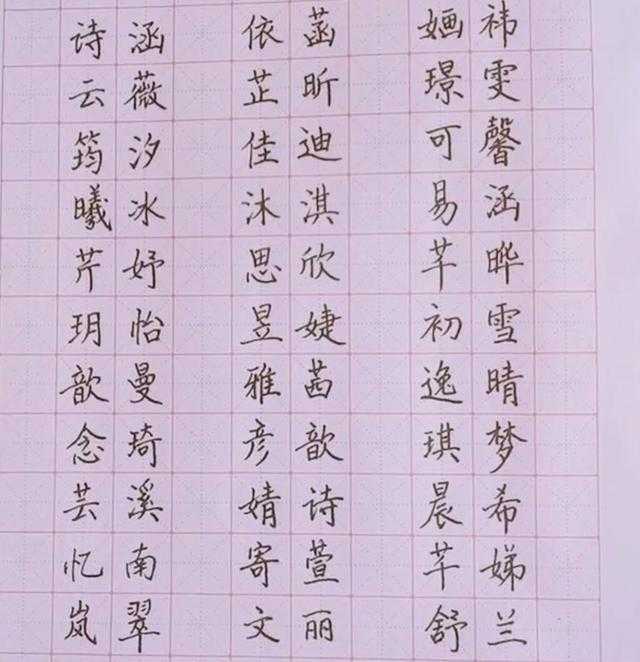 诗涵 依菡 婳祎
云薇 芷昕 璟雯
筠汐 佳迪 可馨
曦冰 沐淇 易涵
芹妤 思欣 芊晔
玥怡 昱婕 初雪
歆曼 雅茜 逸晴
念琦 彦歆 琪梦
芸溪 婧诗 晨希
忆南 寄萱 芊娣
岚翠 文丽 舒兰